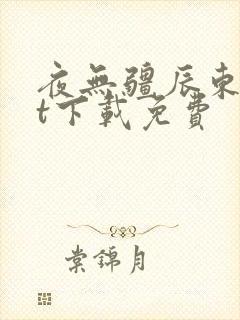 夜無疆辰東
t下載免費
棠錦月